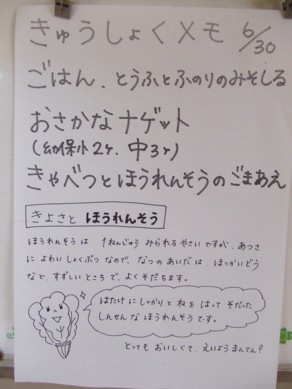 きゅうしょくメモ 6/30
ごはん、とうふとふのりのみそしる
おさかなナゲット
(幼保小2ケ、中3ケ)
きゃべつとほうれんそうのごまあえ
きよさと ほうれんそう
ほうれんそうは 1ねんじゅう みられるやさいですが、あつさ
に よわい しょくぶつ なので、なつの あいだ は、ほっかいどう
など、すずしい ところ で、よく そだちます。
はたけに しっかり と ね を はって そだった
しんせん な ほうれんそう です。
とっても おいしくて、えいよう まんてん!